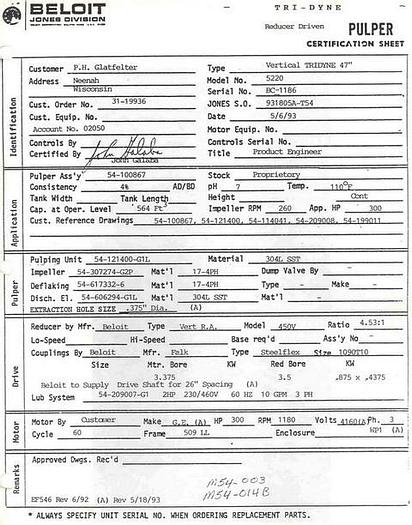 BELOIT
JONES DIVISION
TRI-DYNE
Reducer Driven PULPER
CERTIFICATION SHEET
Identification
Customer P.H. Glatfelter Type Vertical TRIDYNE 47"
Address Neenah Model No. 5220
Wisconsin Serial No. BC-1186
Cust. Order No. 31-19936 JONES S.O. 931805A-T54
Cust. Equip. No. Date 5/6/93
Account No. 02050 Motor Equip. No.
Controls By Controls Serial No.
Certified By John Galaba Title Product Engineer
Application
Pulper Ass'y 54-100867 Stock Proprietory
Consistency 4% AD/BD pH 7 Temp. 110°F
Tank Width Tank Length Height Cont
Cap. at Oper. Level 564 Ft³ Impeller RPM 260 App. HP 300
Cust. Reference Drawings 54-100867, 54-121400, 54-114041, 54-209008, 54-199011
Pulper
Pulping Unit 54-121400-G1L Material 304L SST
Impeller 54-307274-G2P Mat'l 17-4PH Dump Valve By -
Deflaking 54-617332-6 Mat'l 17-4PH Type - Make -
Disch. El. 54-606294-G1L Mat'l 304L SST Mat'l -
EXTRACTION HOLE SIZE .375" Dia. (A)
Drive
Reducer by Mfr. Beloit Type Vert R.A. Model 450V Ratio 4.53:1
Lo-Speed Hi-Speed Base req'd - Ass'y No -
Couplings By Beloit Mfr. Falk Type Steelflex Size 1090T10
Size Mtr. Bore KW Red Bore KW
3.375 3.5 .875 x .4375
Beloit to Supply Drive Shaft for 26" Spacing (A)
Lub System 54-209007-G1 2HP 230/460V 60 HZ 10 GPM 3 PH
Motor
Motor By Customer Make G.E. (A) HP 300 RPM 1180 Volts 4160(A) Ph. 3
Cycle 60 Frame 509 LL Enclosure WP1 (A)
Remarks
Approved Dwgs. Rec'd
M54-003
M54-014B
EF546 Rev 6/92 (A) Rev 5/18/93
* ALWAYS SPECIFY UNIT SERIAL NO. WHEN ORDERING REPLACEMENT PARTS.